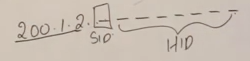 200.1.2. _ _ _ _ _ _ _ _
SID HID